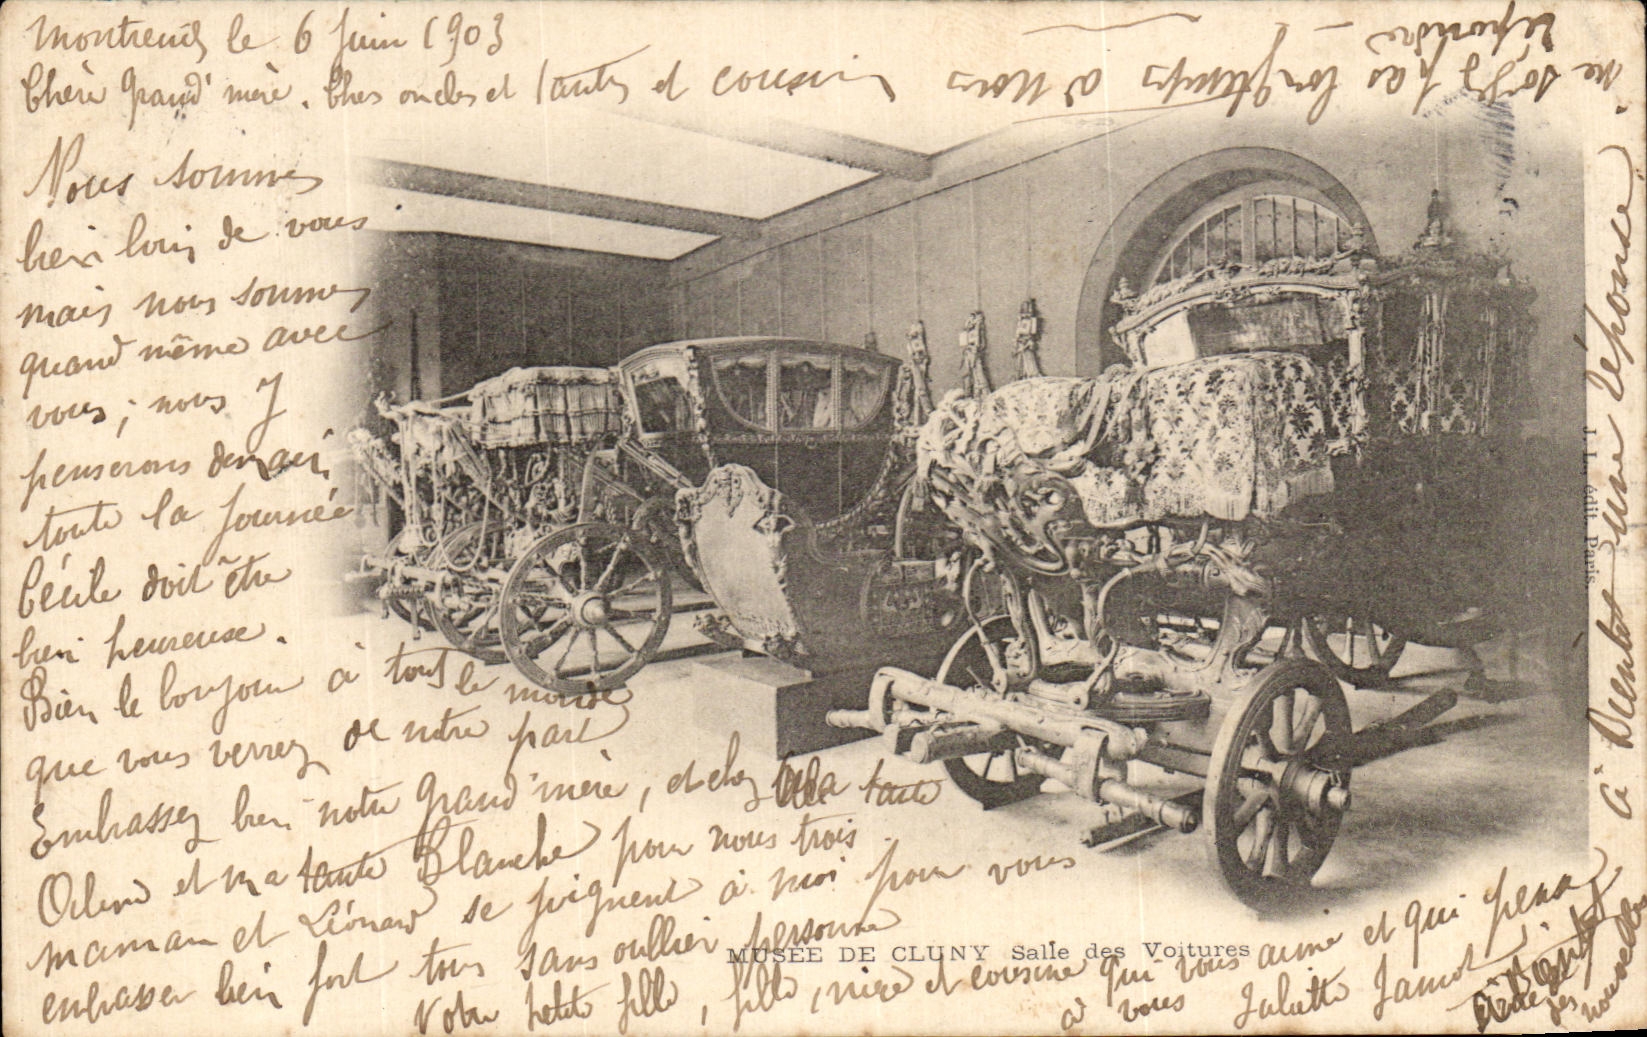 Montreuil le 6 Juin 1903
Chère Grand'mère. Chers oncles et tantes et cousin
Nous sommes
bien loin de vous
mais nous sommes
quand même avec
vous, nous y
penserons demain
toute la journée
Cécile doit être
bien heureuse.
Bien le bonjour à tout le monde
que vous verrez de notre part
Embrassez bien notre Grand'mère, et chez ma tante
et ma tante Blanche pour nous trois.
maman et Léonard se joignent à moi pour vous
embrasser bien fort tous sans oublier personne
Votre petite fille, fille, nièce et cousine qui vous aime et qui pense
à vous Juliette Jamot
MUSÉE DE CLUNY Salle des Voitures
J. L., édit. Paris
des nouvelles
à Bientot une réponse.
ne soyez pas longtemps à nous
répondre